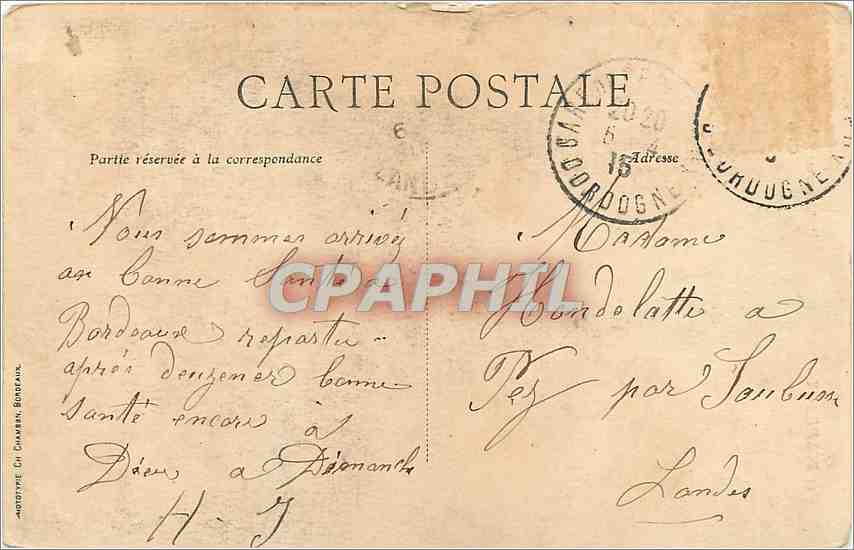 CARTE POSTALE
Partie réservée à la correspondance
Adresse
20 20
6 4
15
DORDOGNE
DORDOGNE
6
LAND
Nous sommes arrivé
en bonne Santé a
Bordeaux repartu
après deuzener bonne
santé encore à
Dieu a Dimanche
H. J
Madame
Hondelatte a
Tez par Saubusse
Landes
CPAPHIL
PHOTOTYPIE CH CHAMBON, BORDEAUX.